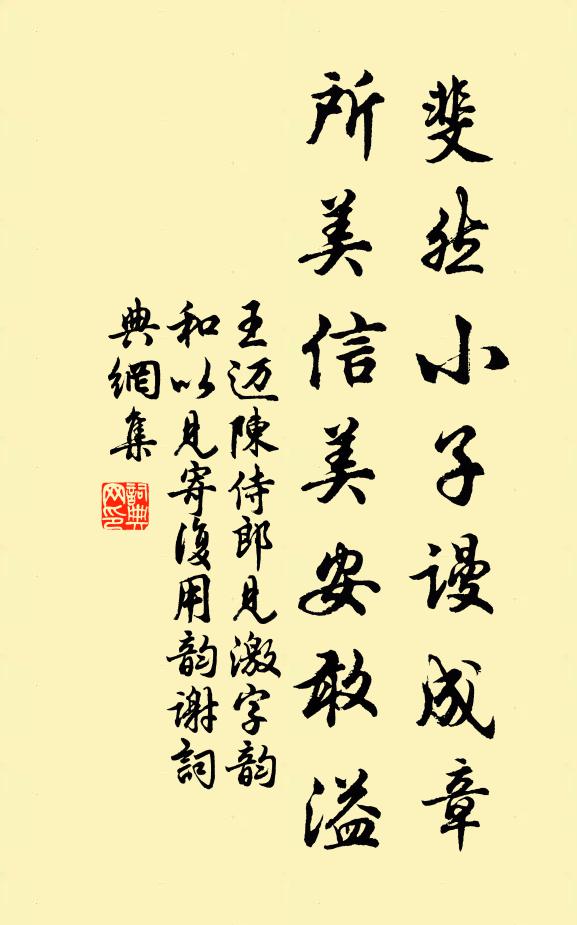 斐然小子谩成章
所美信美安敢溢
王迈陳侍郎見激字韵
和以見寄復用韵谢詞
典網集
詞典网印